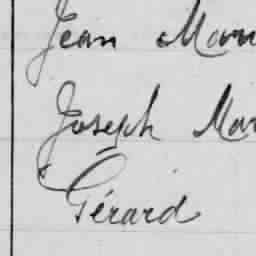 Jean Mari
Joseph Mar
Gérard